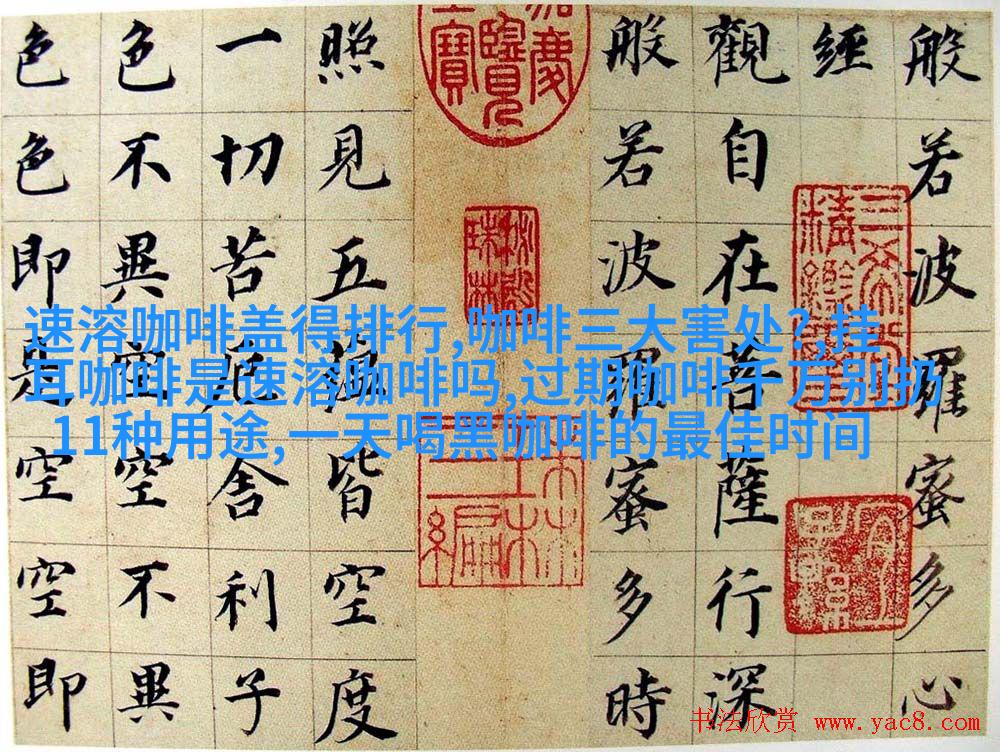 般若波羅蜜多心
經
觀自在菩薩行深
般若波羅蜜多時
照見五蘊皆空度
一切苦厄舍利子
色不異空空不異
色色即是空空即
速溶咖啡盖得排行,咖啡三大害处?,挂
耳咖啡是速溶咖啡吗,过期咖啡千万别扔
11种用途,一天喝黑咖啡的最佳时间
书法欣赏 www.yac8.com